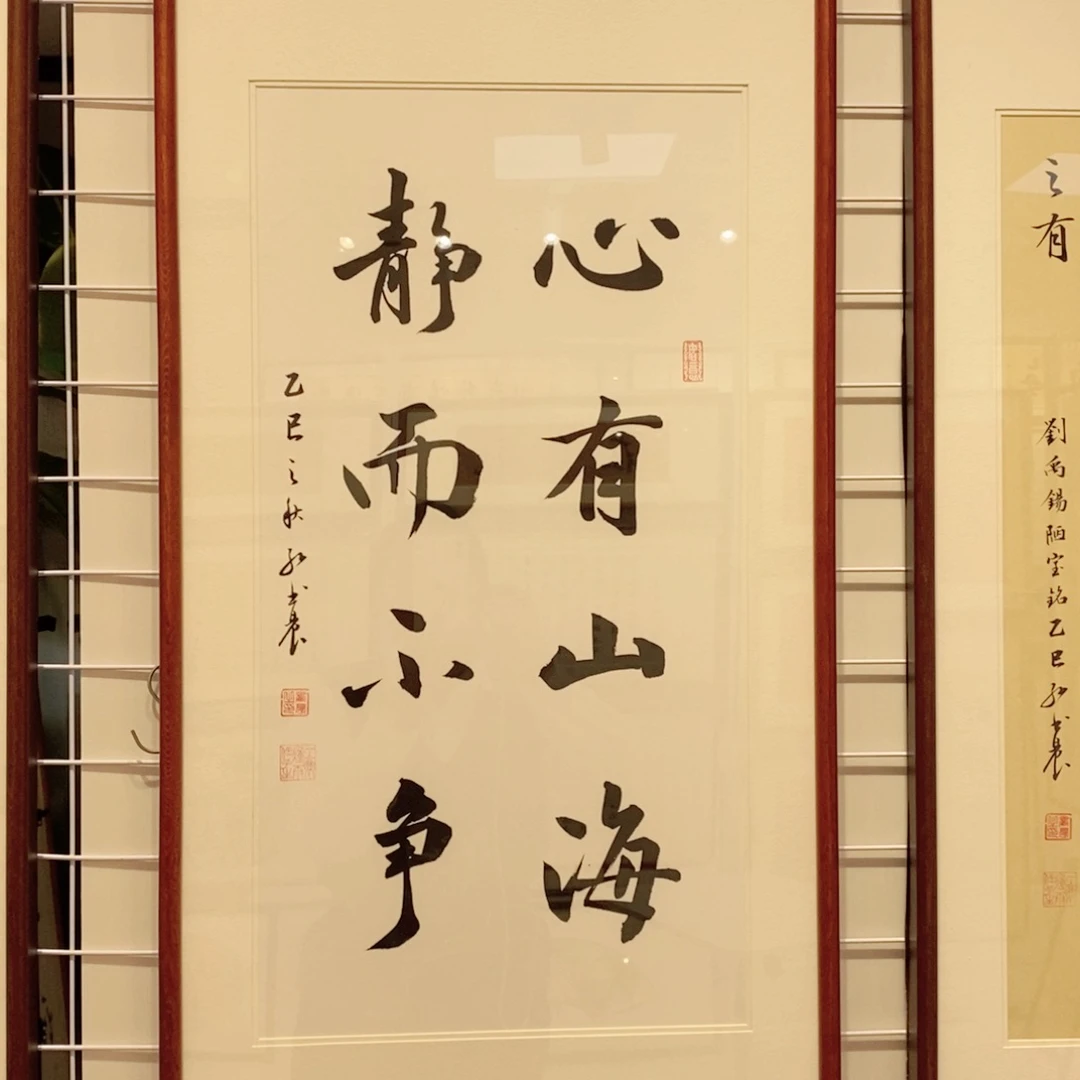 心有山海
静而不争
乙巳之秋
之有
劉禹錫陋室銘乙巳